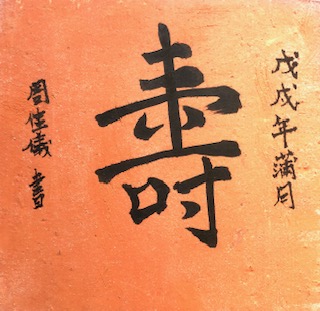 戊戌年蒲月
壽
周佳儀 書